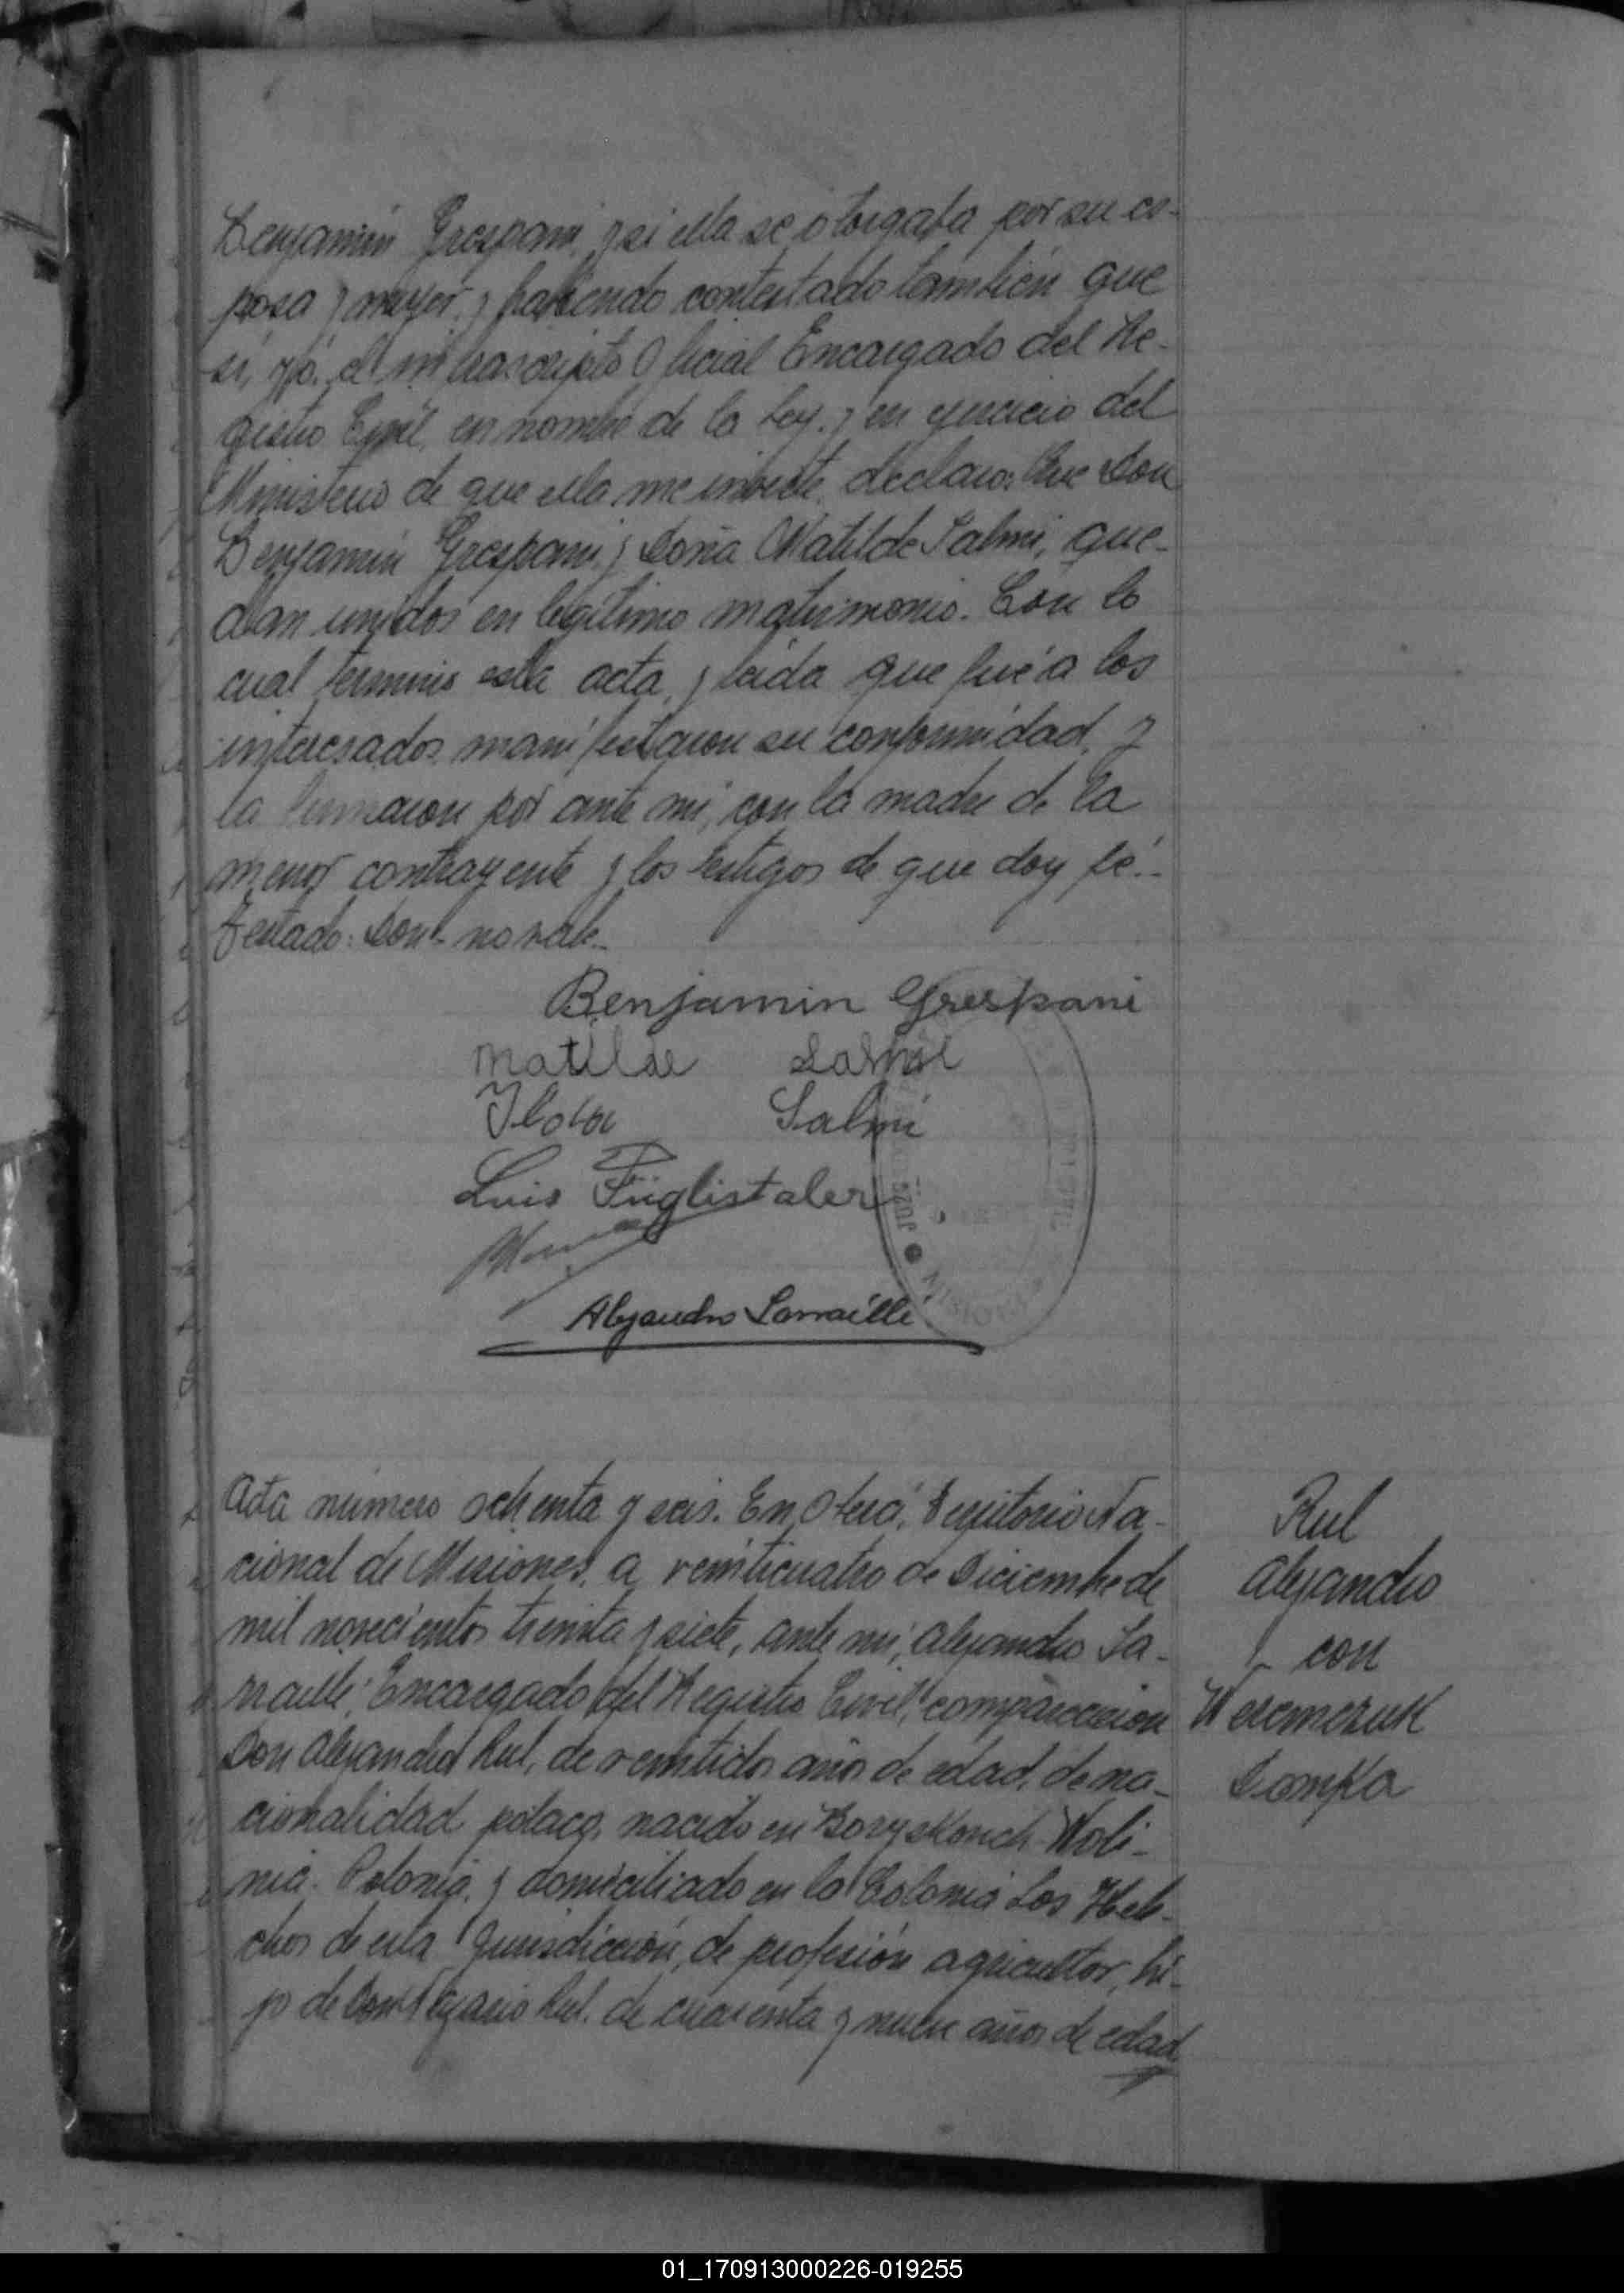 Benjamin Grespani, y si ella se otorgaba por su es-
posa y mujer, y habiendo contestado también que
sí, yó, el infrascripto Oficial Encargado del Re-
gistro Civil, en nombre de la Ley, y en ejercicio del
Ministerio de que ella me inviste, declaro: Que Don
Benjamin Grespani, y Doña Matilde Salmi, que-
dan unidos en legítimo matrimonio. Con lo
cual termino esta acta, y leida que fué a los
interesados, manifestaron su conformidad, y
la firmaron por ante mí, con la madre de la
menor contrayente y los testigos de que doy fé.-
Testado: Don- no vale.-
Benjamin Grespani
Matilde Salmi
Salmi
Luis Füglistaler
Alejandro Sarraillé
Acta número ochenta y seis. En Oberá, Territorio Na-
cional de Misiones, a veinticuatro de Diciembre de
mil novecientos treinta y siete, ante mí, Alejandro Sa-
rraillé, Encargado del Registro Civil, comparecieron
Don Alejandro Rul, de veintidos años de edad, de na-
cionalidad polaca, nacido en Woli-
nia. Polonia, y domiciliado en la Colonia Los Hele-
chos de esta Jurisdicción, de profesión agricultor, hi-
jo de Don Rul, de cuarenta y nueve años de edad,
Rul
Alejandro
con
Weremczuk
01_170913000226-019255